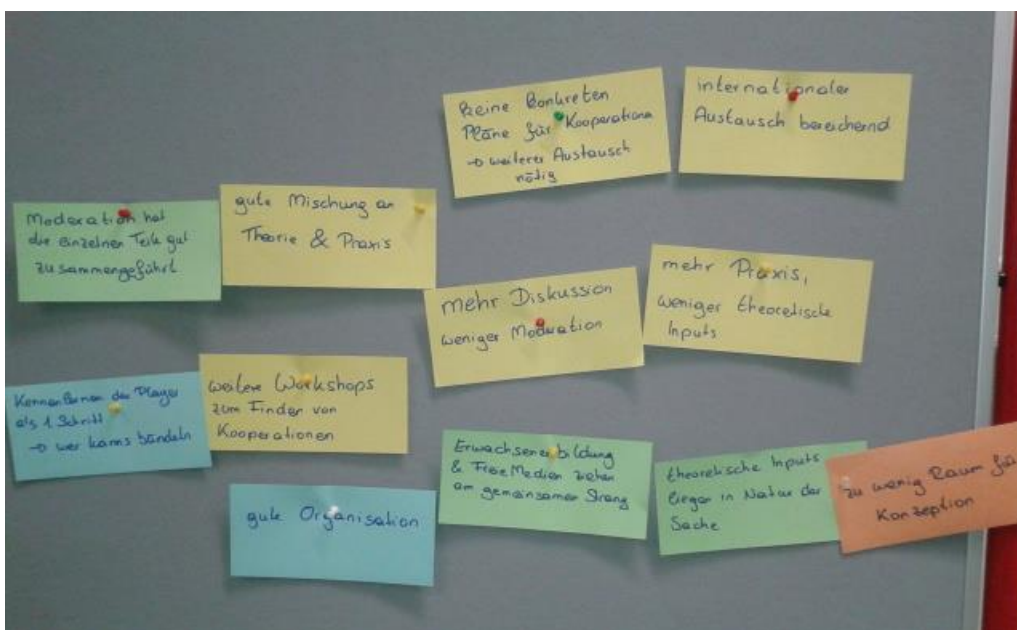 keine konkreten
Pläne für Kooperationen
→ weiterer Austausch
nötig
internationaler
Austausch bereichernd
Moderation hat
die einzelnen Teile gut
zusammengeführt
gute Mischung an
Theorie & Praxis
mehr Diskussion
weniger Moderation
mehr Praxis,
weniger theoretische
Inputs
Kennenlernen der Player
als 1 Schritt
→ wer kanns bündeln
weitere Workshops
zum Finden von
Kooperationen
Erwachsenenbildung
& Freie Medien ziehen
am gemeinsamen Strang
theoretische Inputs
liegen in Natur der
Sache
zu wenig Raum für
Konzeption
gute Organisation